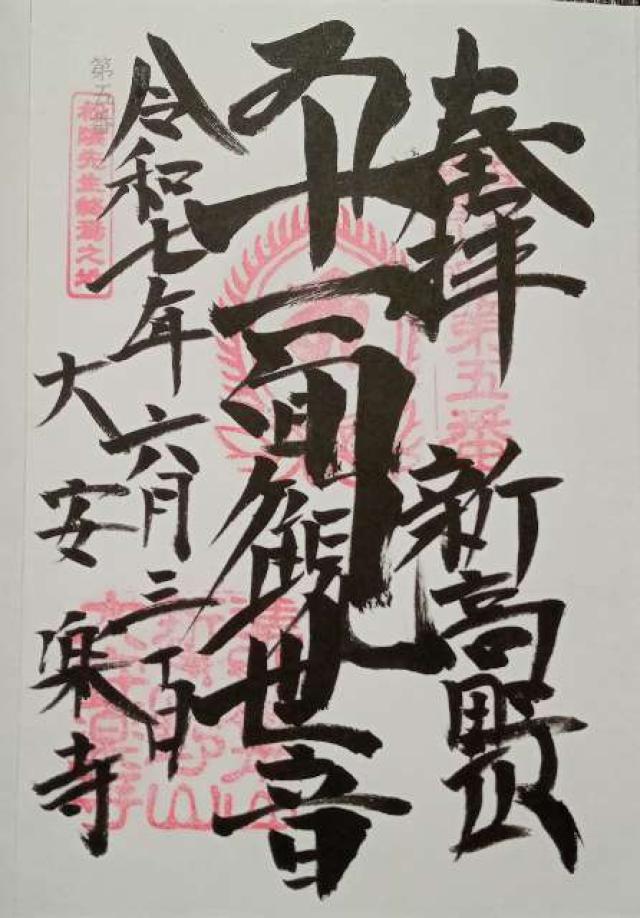 奉拝
第五番
新高野山
十一面観世音
令和七年六月三十日
大安楽寺
第五番
松陰先生終焉之地